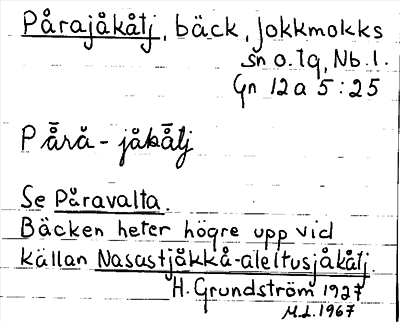 Pårajåkåtj, bäck, Jokkmokks
sn o. lq, Nb. l.
Gn 12a 5:25
Pā̊rå̄ - jåkā̊tj
Se Påravalta.
Bäcken heter högre upp vid
källan Nasastjåkkå-aleltusjåkåtj.
H. Grundström 1927
M.L. 1967